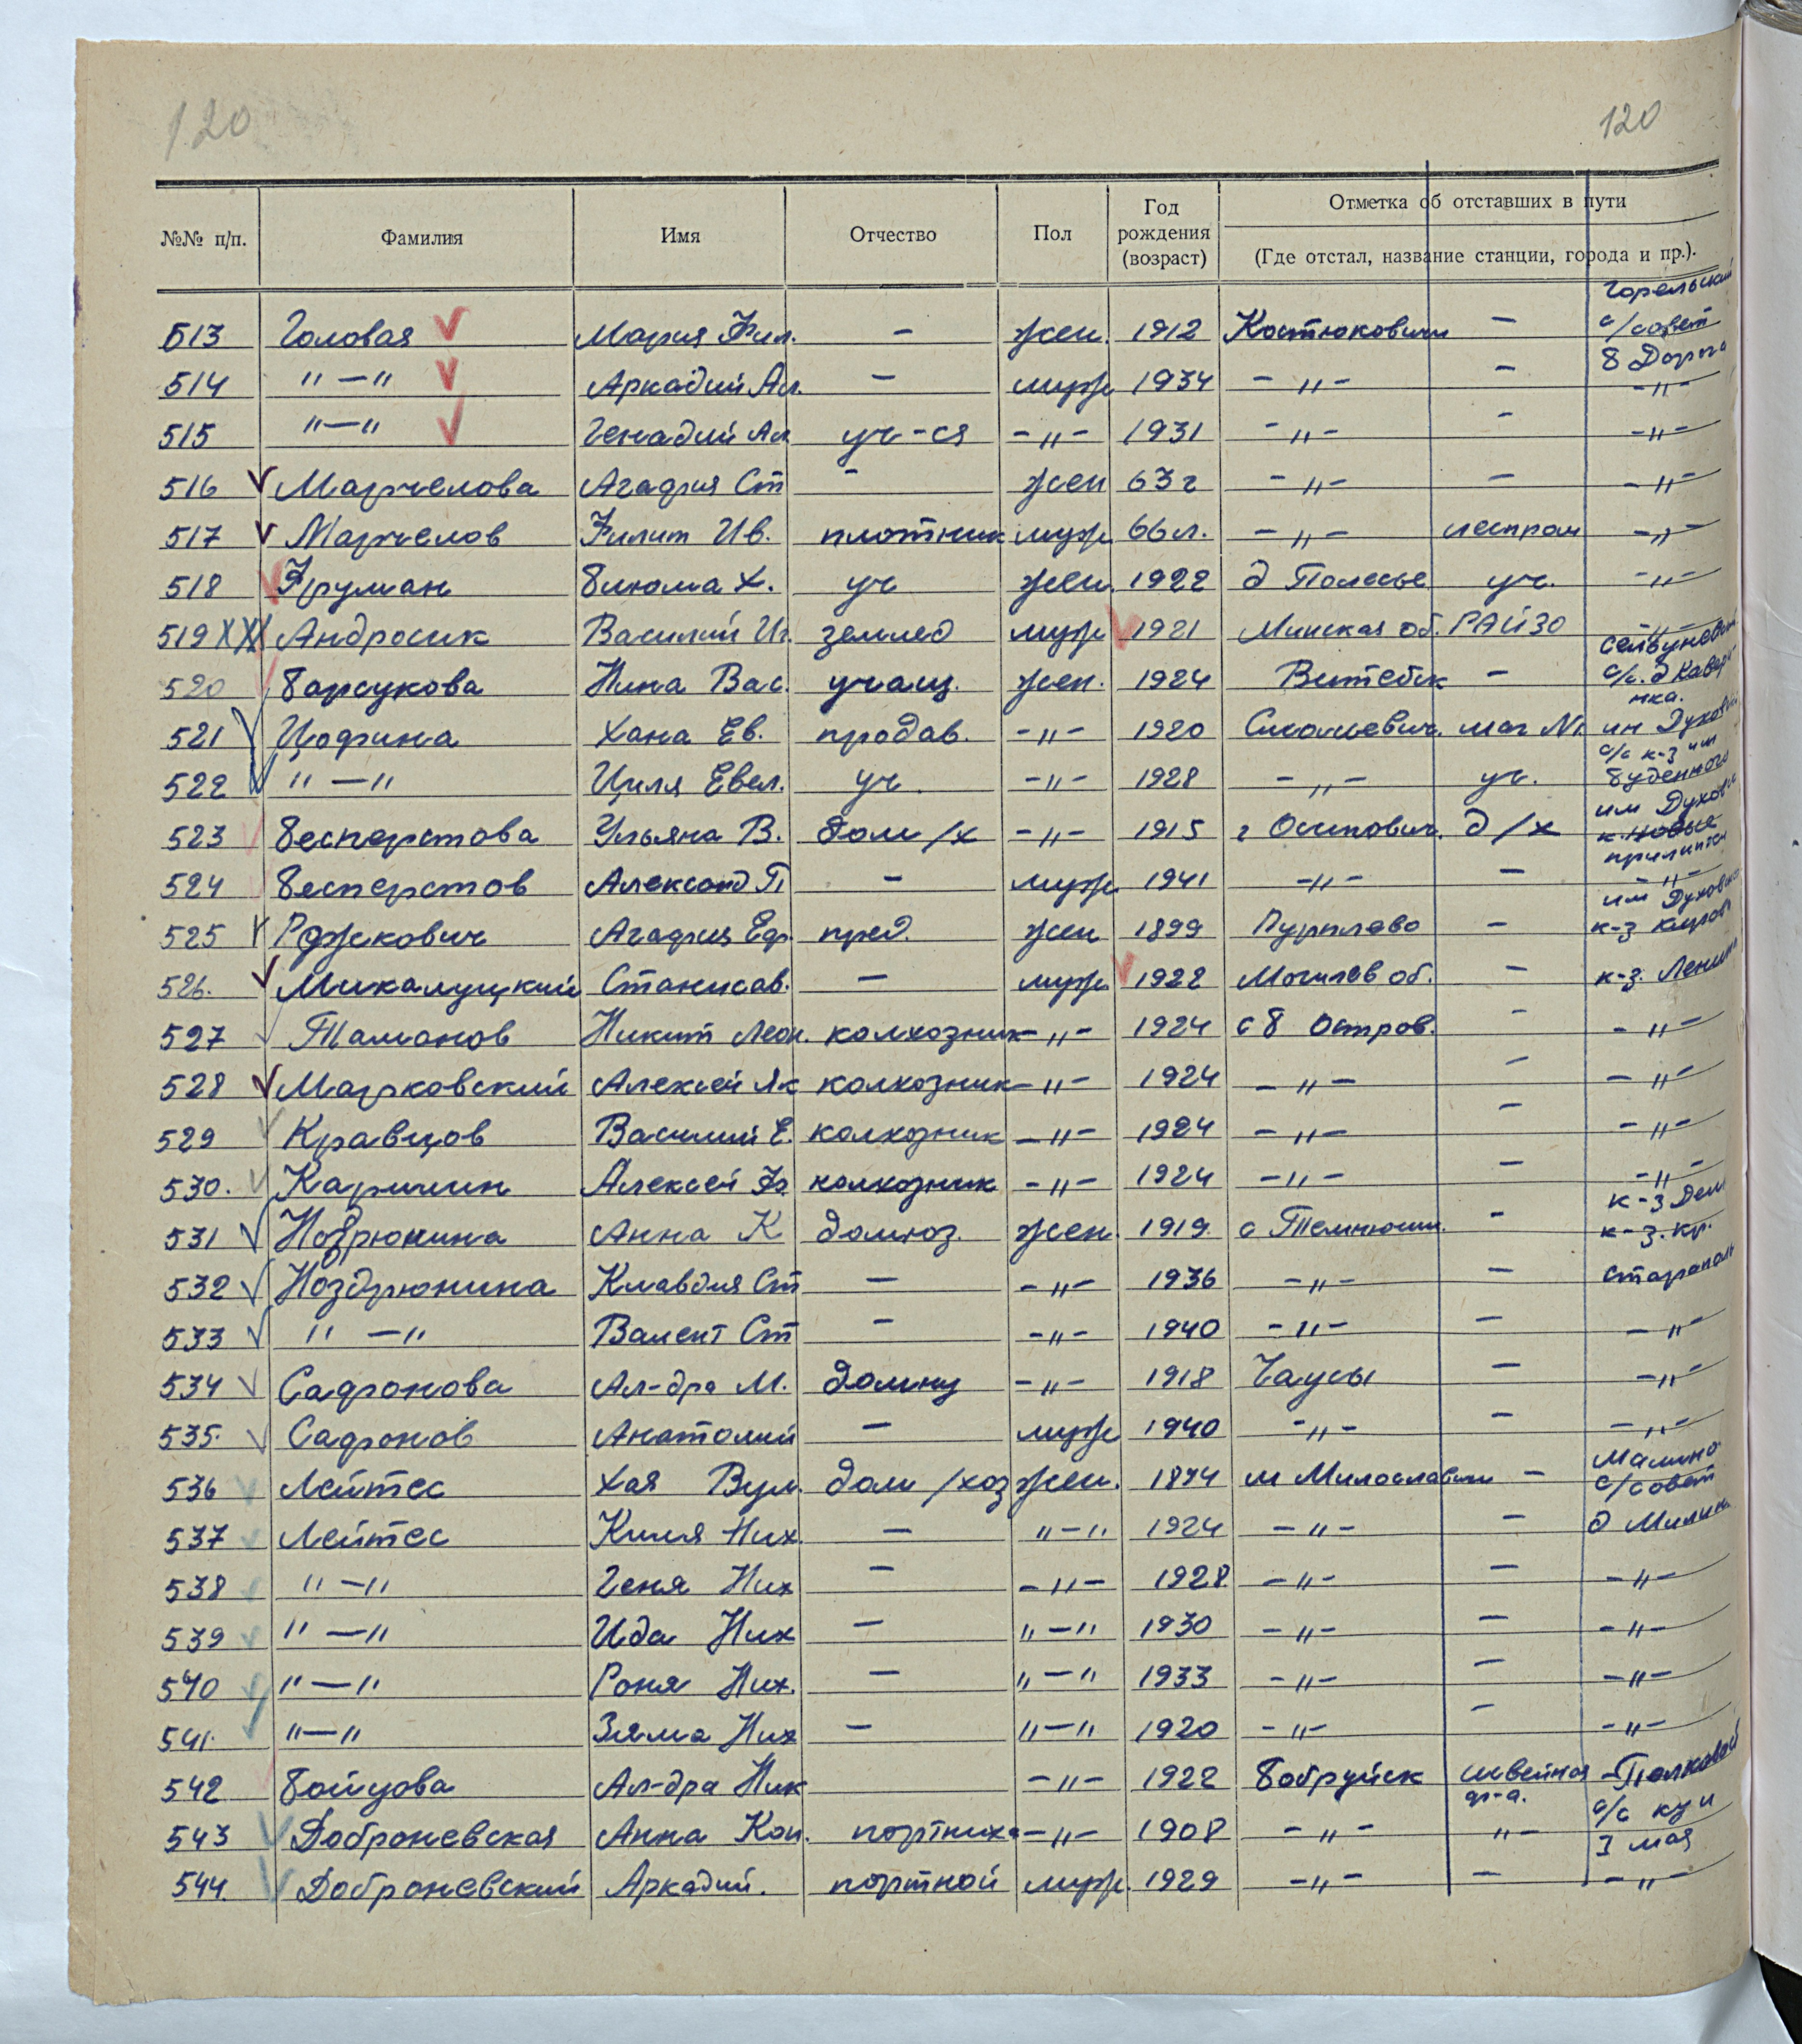 120 120
№№ п/п. Фамилия Имя Отчество Пол Год рождения (возраст) Отметка об отставших в пути
(Где отстал, название станции, города и пр.).
Горельский
513 Головая Мария Фил. - жен. 1912 Костюкович - с/совет
б Дорога
514 " - " Аркадий Ал. - муж 1934 - " - - - " -
515 " - " Генадий Ал уч-ся - " - 1931 - " - - - " -
516 Марчелова Агафия Ст - жен 63 г - " - - - " -
517 Марчелов Филип Ив. плотник муж 66 л. - " - леспром - " -
518 Фруман Блюма Х. уч жен. 1922 д Полесье уч. - " -
519 XX Андросик Василий Иг. землед муж 1921 Минская об. РАЙЗО - " -
520 Барсукова Нина Вас. учащ. жен. 1924 Витебск - с/с. д
нка.
521 Цофина Хана Ев. продав. - " - 1920 Смолевич. маг №1. им Духов
с/с к-з им
522 " - " Циля Евел. уч - " - 1928 - " - уч. Буденного
им Духов
523 Бесперстова Ульяна В. дом/х - " - 1915 г Осипович. д/х к. Новые
524 Бесперстов Александ П - муж. 1941 - " - - - " -
им Духов
525 Рджкович Агафия Еф. пред. жен 1899 - к-з Киров
526. Микалуцкий Станисав. - муж 1922 Могилев об. - к-з. Ленина
527 Таманов Никит Леон. колхозник - " - 1924 с б Остров. - - " -
528 Марковский Алексей Як колхозник - " - 1924 - " - - - " -
529 Кравцов Василий Е. колхозник - " - 1924 - " - - - " -
530. Каришин Алексей Фо колхозник - " - 1924 - " - - - " -
к-з Дем
531 Нозрюнина Анна К домхоз. жен. 1919. - к-з. кр.
532 Ноздрюнина Клавдия Ст - - " - 1936 - " - -
533 " - " Валент Ст - - " - 1940 - " - - - " -
534 Сафронова Ал-дра М. - " - 1918 Чаусы - - " -
535. Сафронов Анатолий - муж 1940 - " - - - " -
Малино
536 Лейтес Хая Вул. дом/хоз жен. 1874 м Милославичи - с/совет
537 Лейтес Киля Них. - " - " 1924 - " - - д Милин.
538 " - " Геня Них - - " - 1928 - " - - - " -
539 " - " Ида Них - " - " 1930 - " - - - " -
540 " - " Роня Них. - " - " 1933 - " - - - " -
541. " - " Зяма Них - " - " 1920 - " - - - " -
542 Бойцова Ал-дра Ник - " - 1922 Бобруйск швейная ф-а. - Полковой
с/с
543 Доброневская Анна Кон. портниха - " - 1908 - " - " - 1 мая
544. Доброневский Аркадий. портной муж. 1929 - " - - - " -